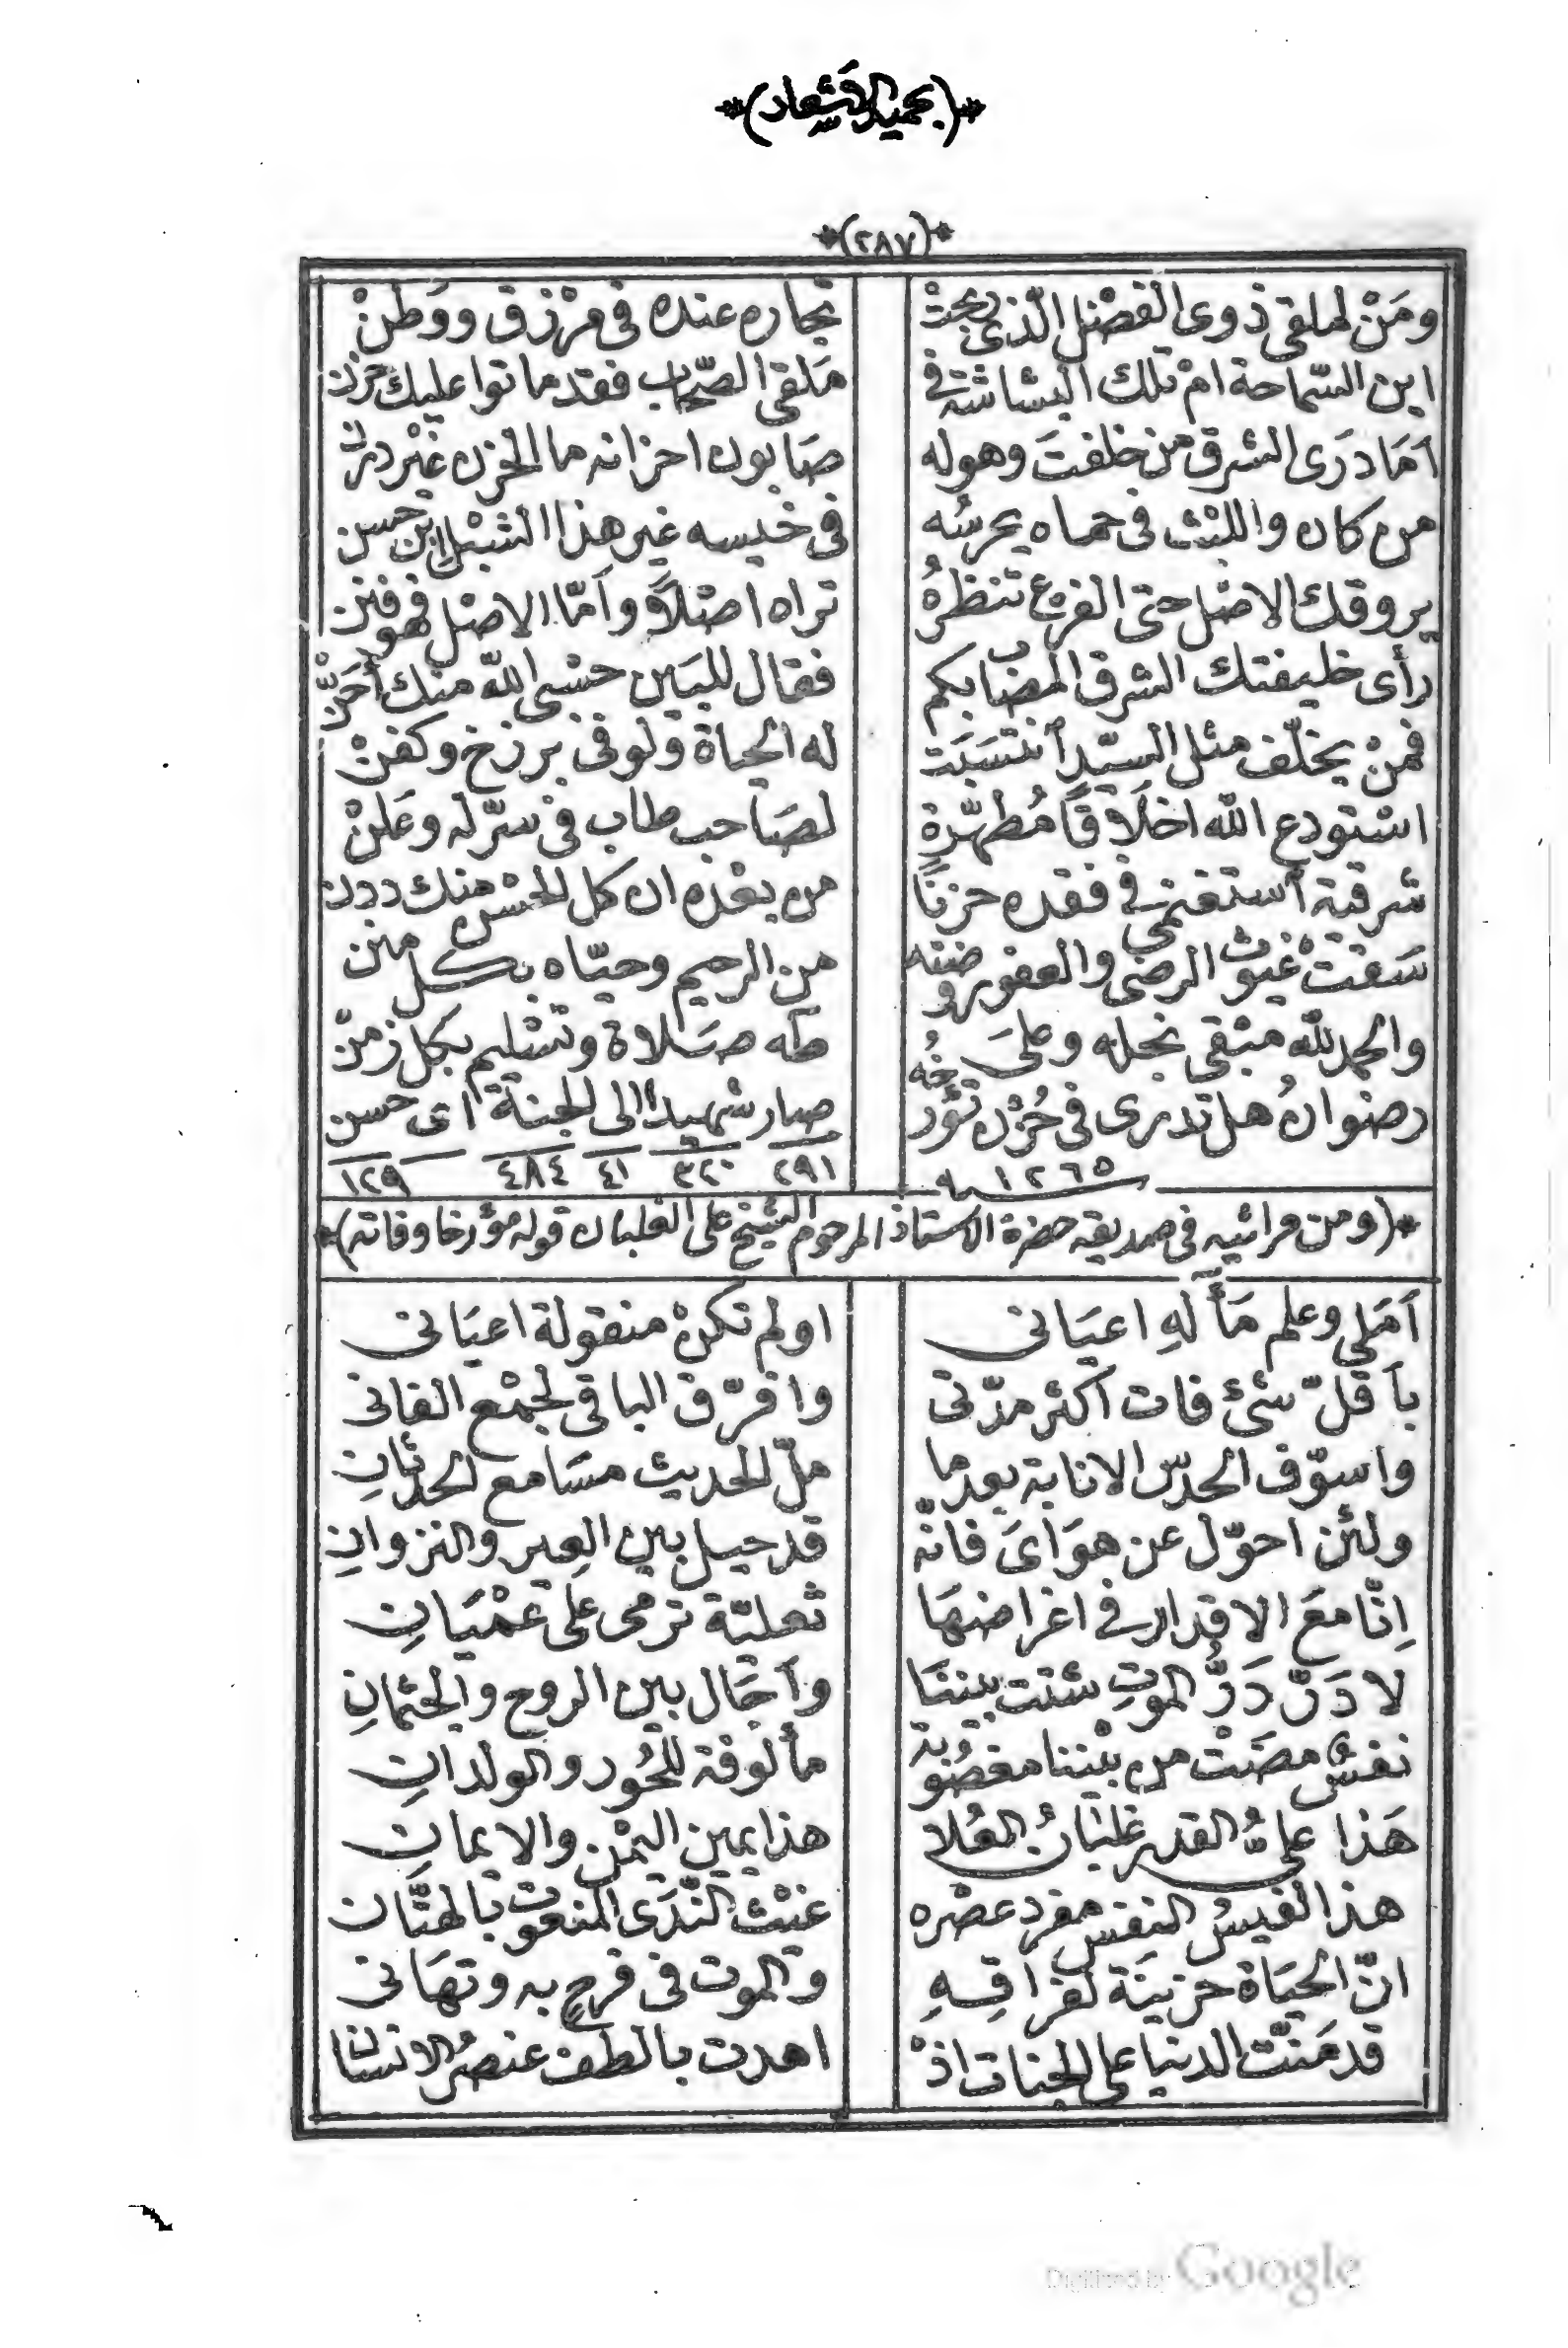 *(بحميد الاشعار)*
*(٢٨٧)*
ومَنْ لملقى ذوى الفضل الّذى بحثْ تجاره عنده فى مرْزق ووَطنْ
اين السّماحة امْ تلك البشاشة فى مَلقى الصّحاب فقد ماتوا عليك حزن
اَمَا دَرَى الشرق من خلفتَ وهو له صَابون احزانه ما الحزن غيْر درن
من كان والليْث فى حماه يحرسُه فى خيسه غير هذا الشبْلِ ابن حسن
يروقك الاصْل حتى الفرع تنظرُهُ تراه اصْلاً واَمّا الاصْل فهو فنن
رأى خليفتك الشرق المصَاب بكم فقال للبَين حسْبى اللّه منك أحَنّ
فمنْ يخلّف مثل السيّد انتسَبَت له الحياة ولو فى برزخ وكفنْ
استودع اللّه اخلَاقًا مُطهّرةٍ لصَاحب طاب فى سرّ له وعَلنْ
شرقية أستفتحى فى فقده حزنًا من بعْده ان كل الحسْن منك ددن
سَقتْ غيوث الرضى والعفو روضته من الرحيم وحيّاه بكل منن
والحمد للّه مبْقى نجله وعلىَ طٰه صَلاة وتسْليم بكل زمنْ
رضوانُ هل تدرى فى حُزْن تؤرخُه صار شهيدًا الى الجنة اتى حسن
سـ ١٢٦٥ـنه ٢٩١ ٣٢٠ ٤١ ٤٨٤ ١٢٩
*(ومن مراثيه فى صديقه حضرة الاستاذ المرحوم الشيخ على الغلبان قوله مؤرخا وفاته)*
اَمَلى وعلم مَآلهِ اعيَانى اولم تكنْ منقولة اعيَانى
بأقلّ شئ فات اكثر مدّتى وافرّق الباقى لجمْع الفانى
واسوّف الحدس الانابة بعدما ملّ الحديث مسَامع الحدثانِ
ولئن احوّل عن هوَاىَ فانّه قد حيل بين العِير والنزوانِ
اِنّا معَ الاقدار فى اغراضهَا ثعليّة ترمى على عمْيَانِ
لا دَرّ دَرُّ الموتِ شتت بيننَا واَحَال بين الروح والجثمانِ
نفسٌ مضَتْ من بيْننا مغضُوبة مألوفة للحُور والولدانِ
هَذا علىُّ القدر غلبَانُ العُلا هذا يمين اليمْن والايمانِ
هذا النفيسُ النفس مفرد عصْره غيْث النّدَى المنعوت بالهتّان
انّ الحيَاة حزينَة لفراقِهِ والموت فى فرحٍ به وتهَانى
قد مَنّت الدنيا على الجنات اذْ اهدت بالطف عنصُر الانسَان
Digitized by Google